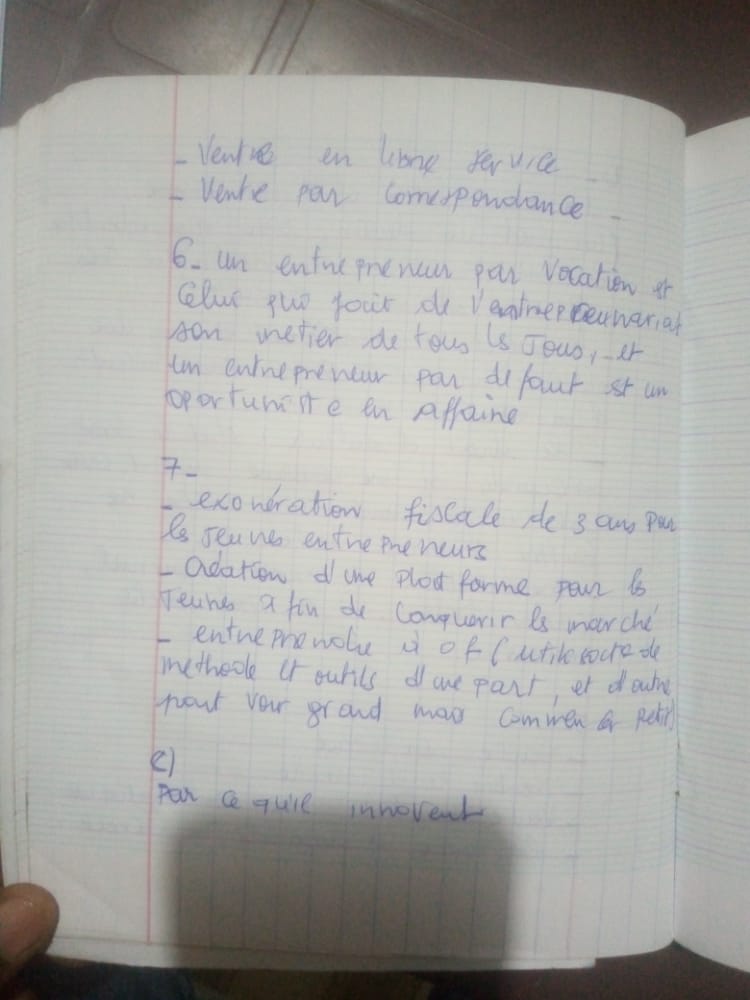 - Vente en libre service -
- Vente par correspondance -
6- un entrepreneur par vocation est
celui qui fait de l'entrepreneuriat
son metier de tous ls Jous, et
un entrepreneur par defaut est un
oportuniste en affaire
7-
- exonération fiscale de 3 ans pour
ls Jeunes entrepreneurs
- Création d'une plate forme pour ls
Jeunes a fin de Conquerir ls marché
- entreprendre à 0 f ( de
methode et outils d'une part, et d'autre
part voir grand mais commencer petit)
c)
Par ce qu'il innovent